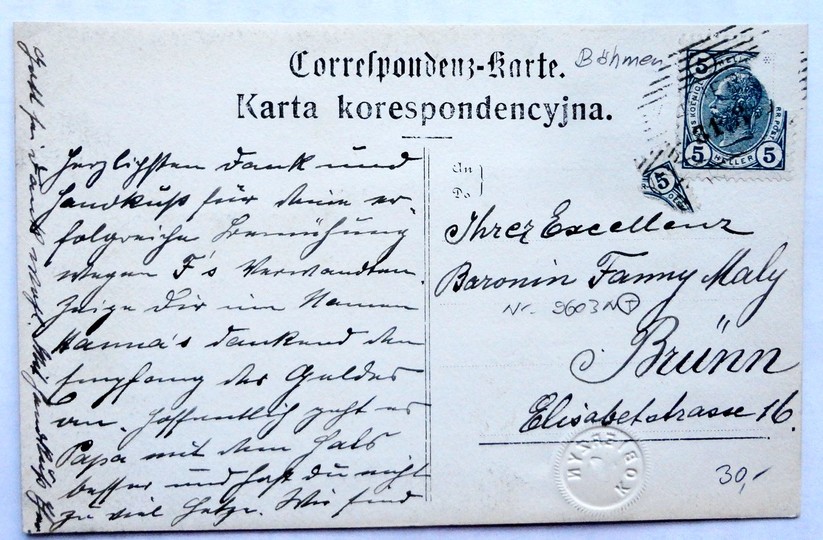 Correspondenz-Karte.
Karta korespondencyjna.
Böhmen
5 HELLER 5
5
An
Do
Ihrer Excellenz
Baronin Fanny Maly
Nr. 9603 N
Brünn
Elisabetstrasse 16.
30,-
herzlichsten Dank und
Handkuß für deine er-
folgreiche Bemühung
wegen F's Verwandten.
Zeige Dir im Namen
Hanna's dankend den
Empfang des Geldes
an. Hoffentlich geht es
Papa mit dem Hals
besser und hast du nicht
zu viel Hetze. Wir sind